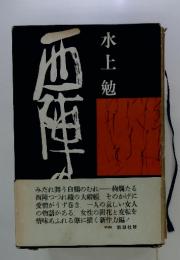 水上勉
西陣の
みだれ舞う白鶴のむれ──絢爛たる
西陣つづれ織の大緞帳 そのかげに
愛憎がうず巻き 一人の哀しい女人
の物語がある 女性の開花と変転を
情味あふれる筆に描く新作力編！
新潮社